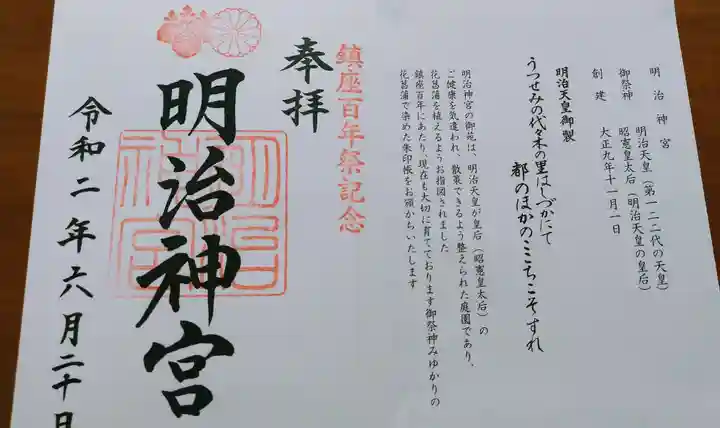 明治神宮
御祭神 明治天皇(第一二二代の天皇)
昭憲皇太后(明治天皇の皇后)
創建 大正九年十一月一日
明治天皇御製
うつせみの代々木の里はしづかにて
都のほかのこゝちこそすれ
明治神宮の御苑は、明治天皇が皇后(昭憲皇太后)の
ご健康を気遣われ、散策できるよう整えられた庭園であり、
花菖蒲を植えるようお指図されました
鎮座百年にあたり、現在も大切に育てております御祭神みゆかりの
花菖蒲で染めた朱印帳をお頒かちいたします
鎮座百年祭記念
奉拝
明治神宮
明治
神宮
令和二年六月二十日